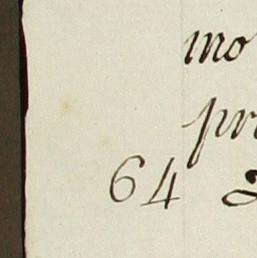 mo
pr
64